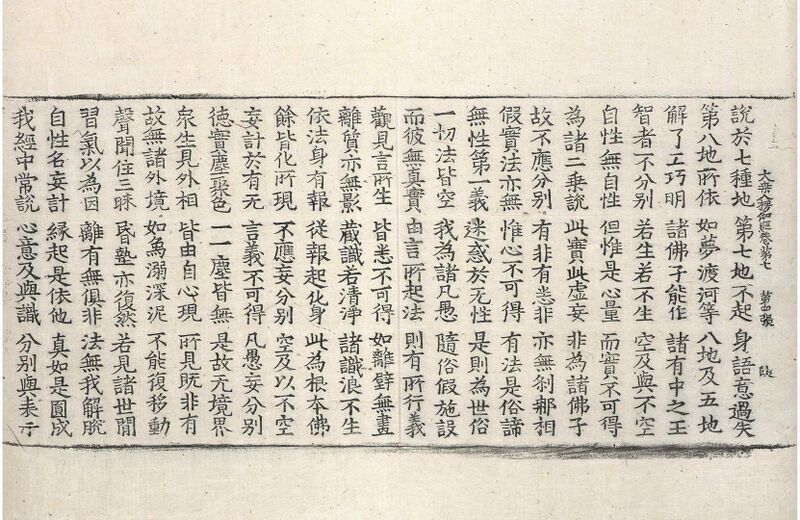 大乗入楞伽經卷第七 第四張
說於七種地 第七地不起 身語意過失
第八地所依 如夢渡河等 八地及五地
解了工巧明 諸佛子能作 諸有中之王
智者不分別 若生若不生 空及與不空
自性無自性 但惟是心量 而實不可得
為諸二乗說 此實此虛妄 非為諸佛子
故不應分別 有非有悉非 亦無剎那相
假實法亦無 惟心不可得 有法是俗諦
無性第一義 迷惑於无性 是則為世俗
一切法皆空 我為諸凡愚 隨俗假施設
而彼無真實 由言所起法 則有所行義
觀見言所生 皆悉不可得 如離壁無畫
離質亦無影 藏識若清淨 諸識浪不生
依法身有報 從報起化身 此為根本佛
餘皆化所現 不應妄分別 空及以不空
妄計於有无 言義不可得 凡愚妄分別
徳實塵聚色 一一塵皆無 是故无境界
衆生見外相 皆由自心現 所見旣非有
故無諸外境 如象溺深泥 不能復移動
聲聞住三昧 昏墊亦復然 若見諸世間
習氣以為因 離有無俱非 法無我解脫
自性名妄計 縁起是依他 真如是圓成
我經中常說 心意及與識 分別與表示